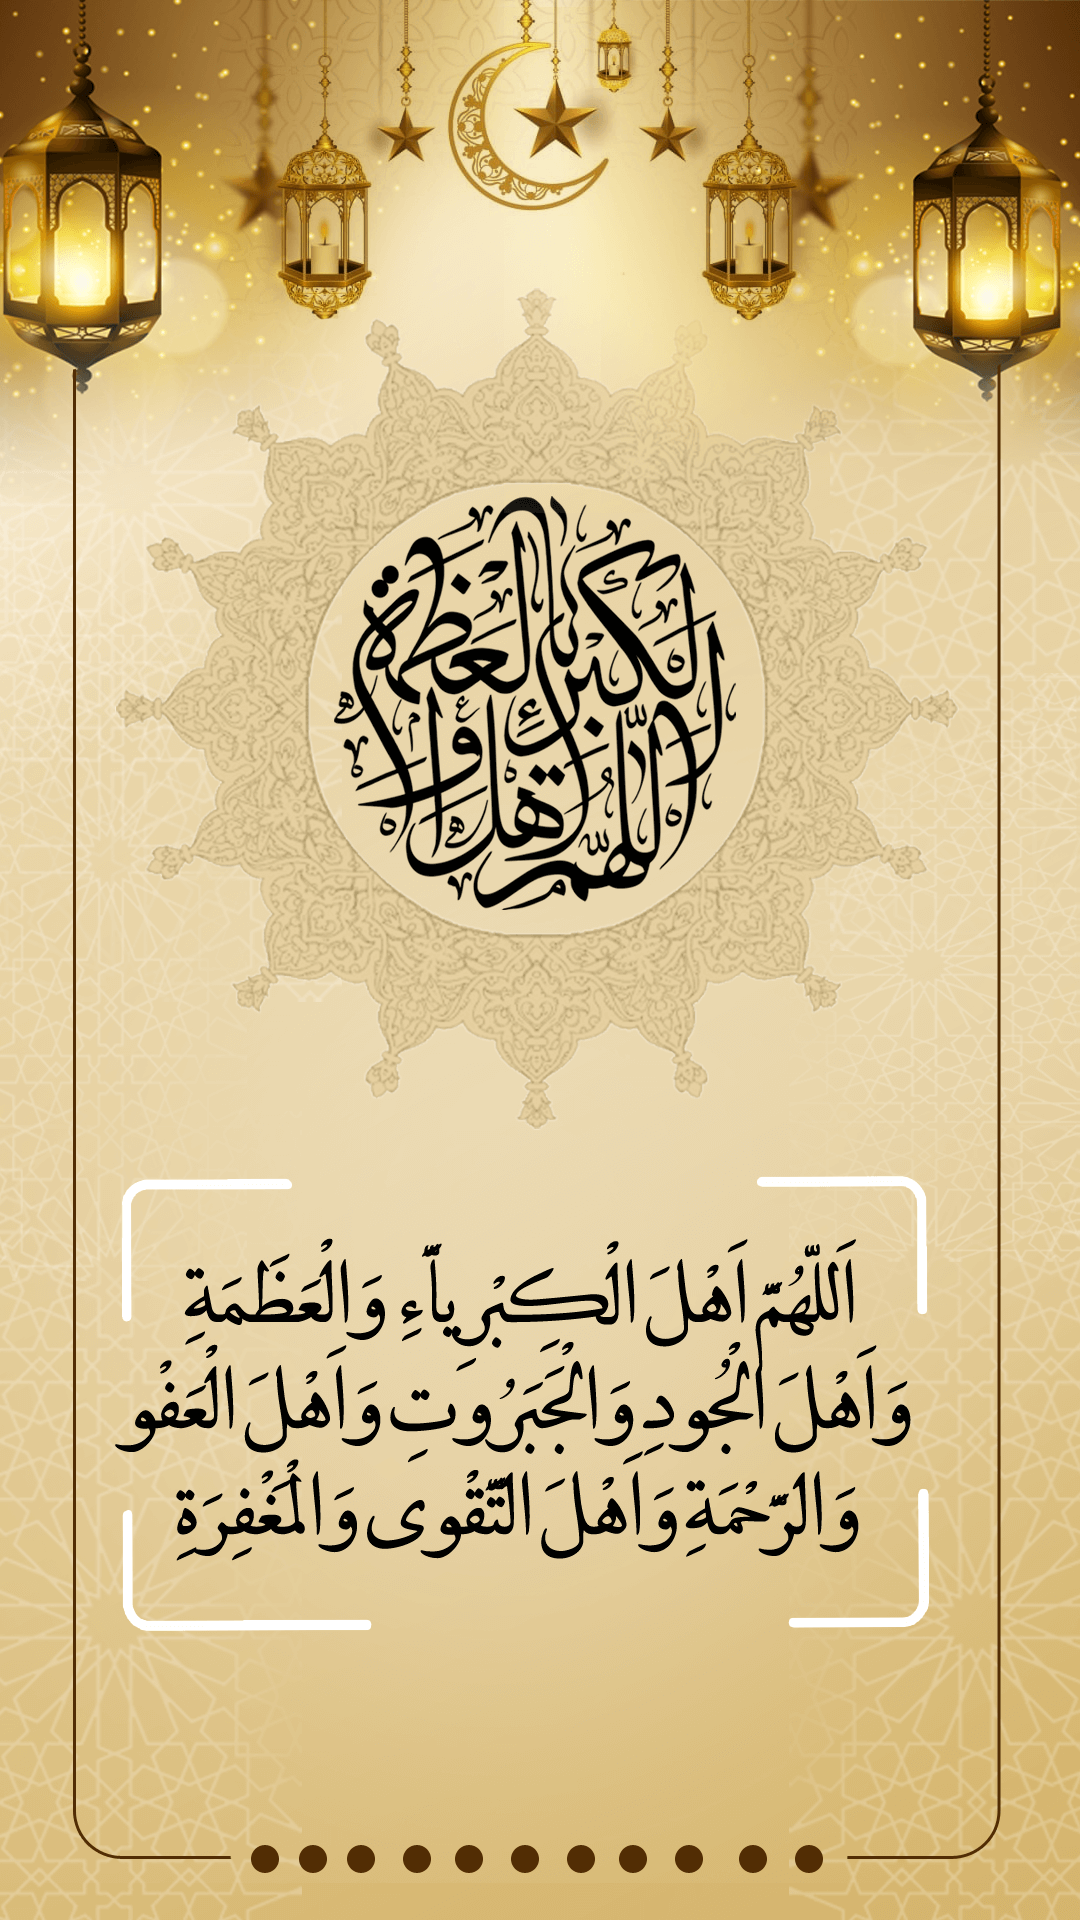 اللهم اهل الكبرياء والعظمة
اَللّهُمّ اَهْلَ الْكِبْرِيآءِ وَالْعَظَمَةِ
وَاَهْلَ الْجُودِ وَالْجَبَرُوتِ وَاَهْلَ الْعَفْو
وَالرّحْمَةِ وَاَهْلَ التّقْوى وَالْمَغْفِرَةِ